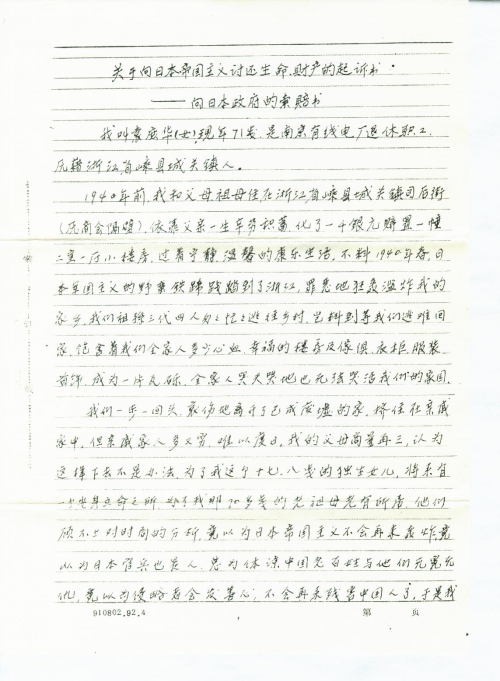 关于向日本帝国主义讨还生命.财产的起诉书
——向日本政府的索赔书
我叫 华(女)现年71岁 是南京有线电厂退休职工,
原籍浙江省嵊县城关镇人。
1940年前,我和父母祖母住在浙江省嵊县城关镇司后街
(原商会隔壁).依靠父亲一生辛劳积蓄,化了一千银元购置一幢
二室一厅小楼房,过着宁静温馨的康乐生活,不料1940年春,日
本军国主义的野蛮铁蹄践踏到了浙江,罪恶地狂轰滥炸我的
家乡,我们祖孙三代四人匆之忙之逃往乡村,岂料到等我们逃难回
家,饱含着我们全家人多少心血 幸福的楼房及傢俱、衣柜服装
首饰,成为一片瓦砾,全家人哭天哭地也无法哭活我们的家园.
我们一步一回头,哀伤地离开了已成废墟的家,挤住在亲戚
家中,但亲戚家人多又穷,难以度日,我的父母商量再三,认为
这样下去不是办法,为了我这个十七、八岁的独生女儿,将来有
一个安身立命之所,为了我那70多岁的老祖母老有所居,他们
顾不上对时局的分析,竟以为日本帝国主义不会再来轰炸,竟
以为日本官兵也是人,总为体谅中国老百姓与他们无冤无
仇,竟以为侵略者会发善心,不会再来残害中国人了,于是我
910802.92.4
第 页